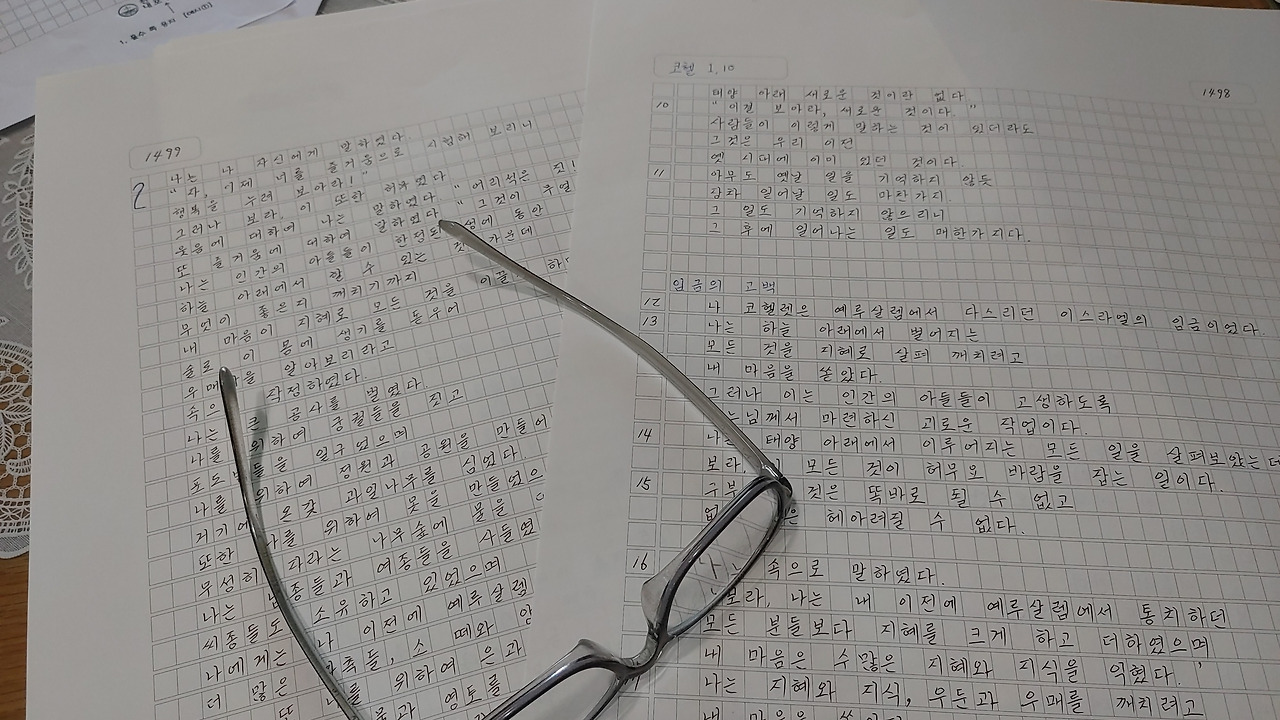 1. 필수
코헬 1,10
1498
태양 아래 새로운 것이란 없다
10 "이걸 보아라, 새로운 것이다."
사람들이 이렇게 말하는 것이 있더라도
그것은 우리 이전
옛 시대에 이미 있던 것이다.
11 아무도 옛날 일을 기억하지 않듯
장차 일어날 일도 마찬가지.
그 일도 기억하지 않으리니
그 후에 일어나는 일도 매한가지다.
임금의 고백
12 나 코헬렛은 예루살렘에서 다스리던 이스라엘의 임금이었다.
13 나는 하늘 아래에서 벌어지는
모든 것을 지혜로 살펴 깨치려고
내 마음을 쏟았다.
그러나 이는 인간의 아들들이 고생하도록
느님께서 마련하신 괴로운 작업이다.
14 나는 태양 아래에서 이루어지는 모든 일을 살펴보았는데
보라, 모든 것이 허무요 바람을 잡는 일이다.
15 구부 것은 똑바로 될 수 없고
없 은 헤아려질 수 없다.
16 나는 속으로 말하였다.
"보라, 나는 내 이전에 예루살렘에서 통치하던
모든 분들보다 지혜를 크게 하고 더하였으며
내 마음은 수많은 지혜와 지식을 익혔다."
나는 지혜와 지식, 우둔과 우매를 깨치려고
내 마음을
1499
2 나는 나 자신에게 말하였다.
"자, 이제 너를 즐거움으로 시험해 보리니
행복을 누려 보아라!"
그러나 보라, 이 또한 허무였다.
웃음에 대하여 나는 말하였다. "어리석은 짓!
또 즐거움에 대하여 말하였다. "그것이 무엇
나는 인간의 아들들이 한정된 생애 동안
하늘 아래에서 할 수 있는 것 가운데
무엇이 좋은지 깨치기까지
내 마음이 지혜로 모든 것을 이끌 하
술로 이 몸에 생기를 돋우어
우매 을 알아보리라고
속으 작정하였다.
나는 큰 공사를 벌였다.
나를 위하여 궁궐들을 짓고
포도 들을 일구었으며
나를 위하여 정원과 공원을 만들어
거기에 온갖 과일나무를 심었다.
또한 나를 위하여 못을 만들었으
무성히 자라는 나무숲에 물을
나는 남종들과 여종들을 사들였
씨종들도 소유하고 있었으며
나에게는 나 이전에 예루살렘
더 많은 가축들, 소 떼와 양
또 나를 위하여 은과
물과 영토를